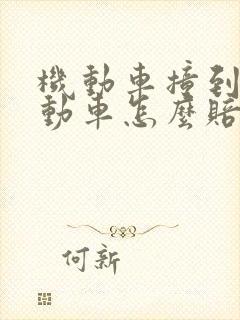 機動車撞到
動車怎麼賠
何新